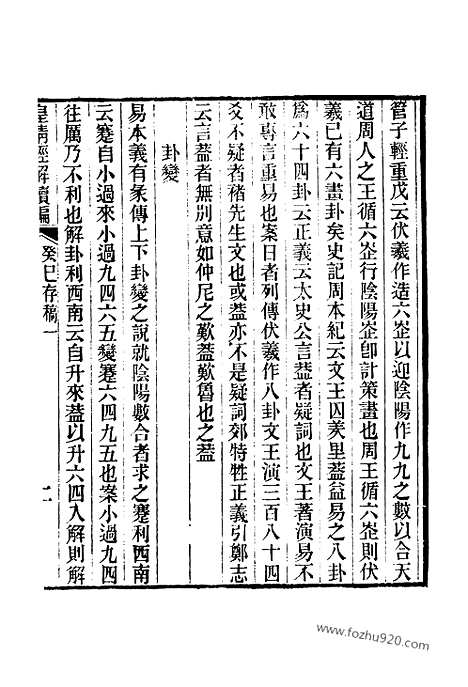 管子輕重戊云伏羲作造六峜以迎陰陽作九九之數以合天
道周人之王循六峜行陰陽峜卽計策畫也周王循六峜則伏
羲已有六畫卦矣史記周本紀云文王囚羑里葢益易之八卦
爲六十四卦云正義云太史公言葢者疑詞也文王著演易不
敢專言重易也案日者列傳伏羲作八卦文王演三百八十四
爻不疑者褚先生文也或葢亦不是疑詞郊特牲正義引鄭志
云言葢者無別意如仲尼之歎葢歎魯也之葢
卦變
易本義有彖傳上下卦變之說就陰陽數合者求之蹇利西南
云蹇自小過來小過九四六五變蹇六四九五也案小過九四
往厲乃不利也解卦利西南云自升來葢以升六四入解則解
皇淸經解續編
癸巳存稿一
二
www.fozhu920.com